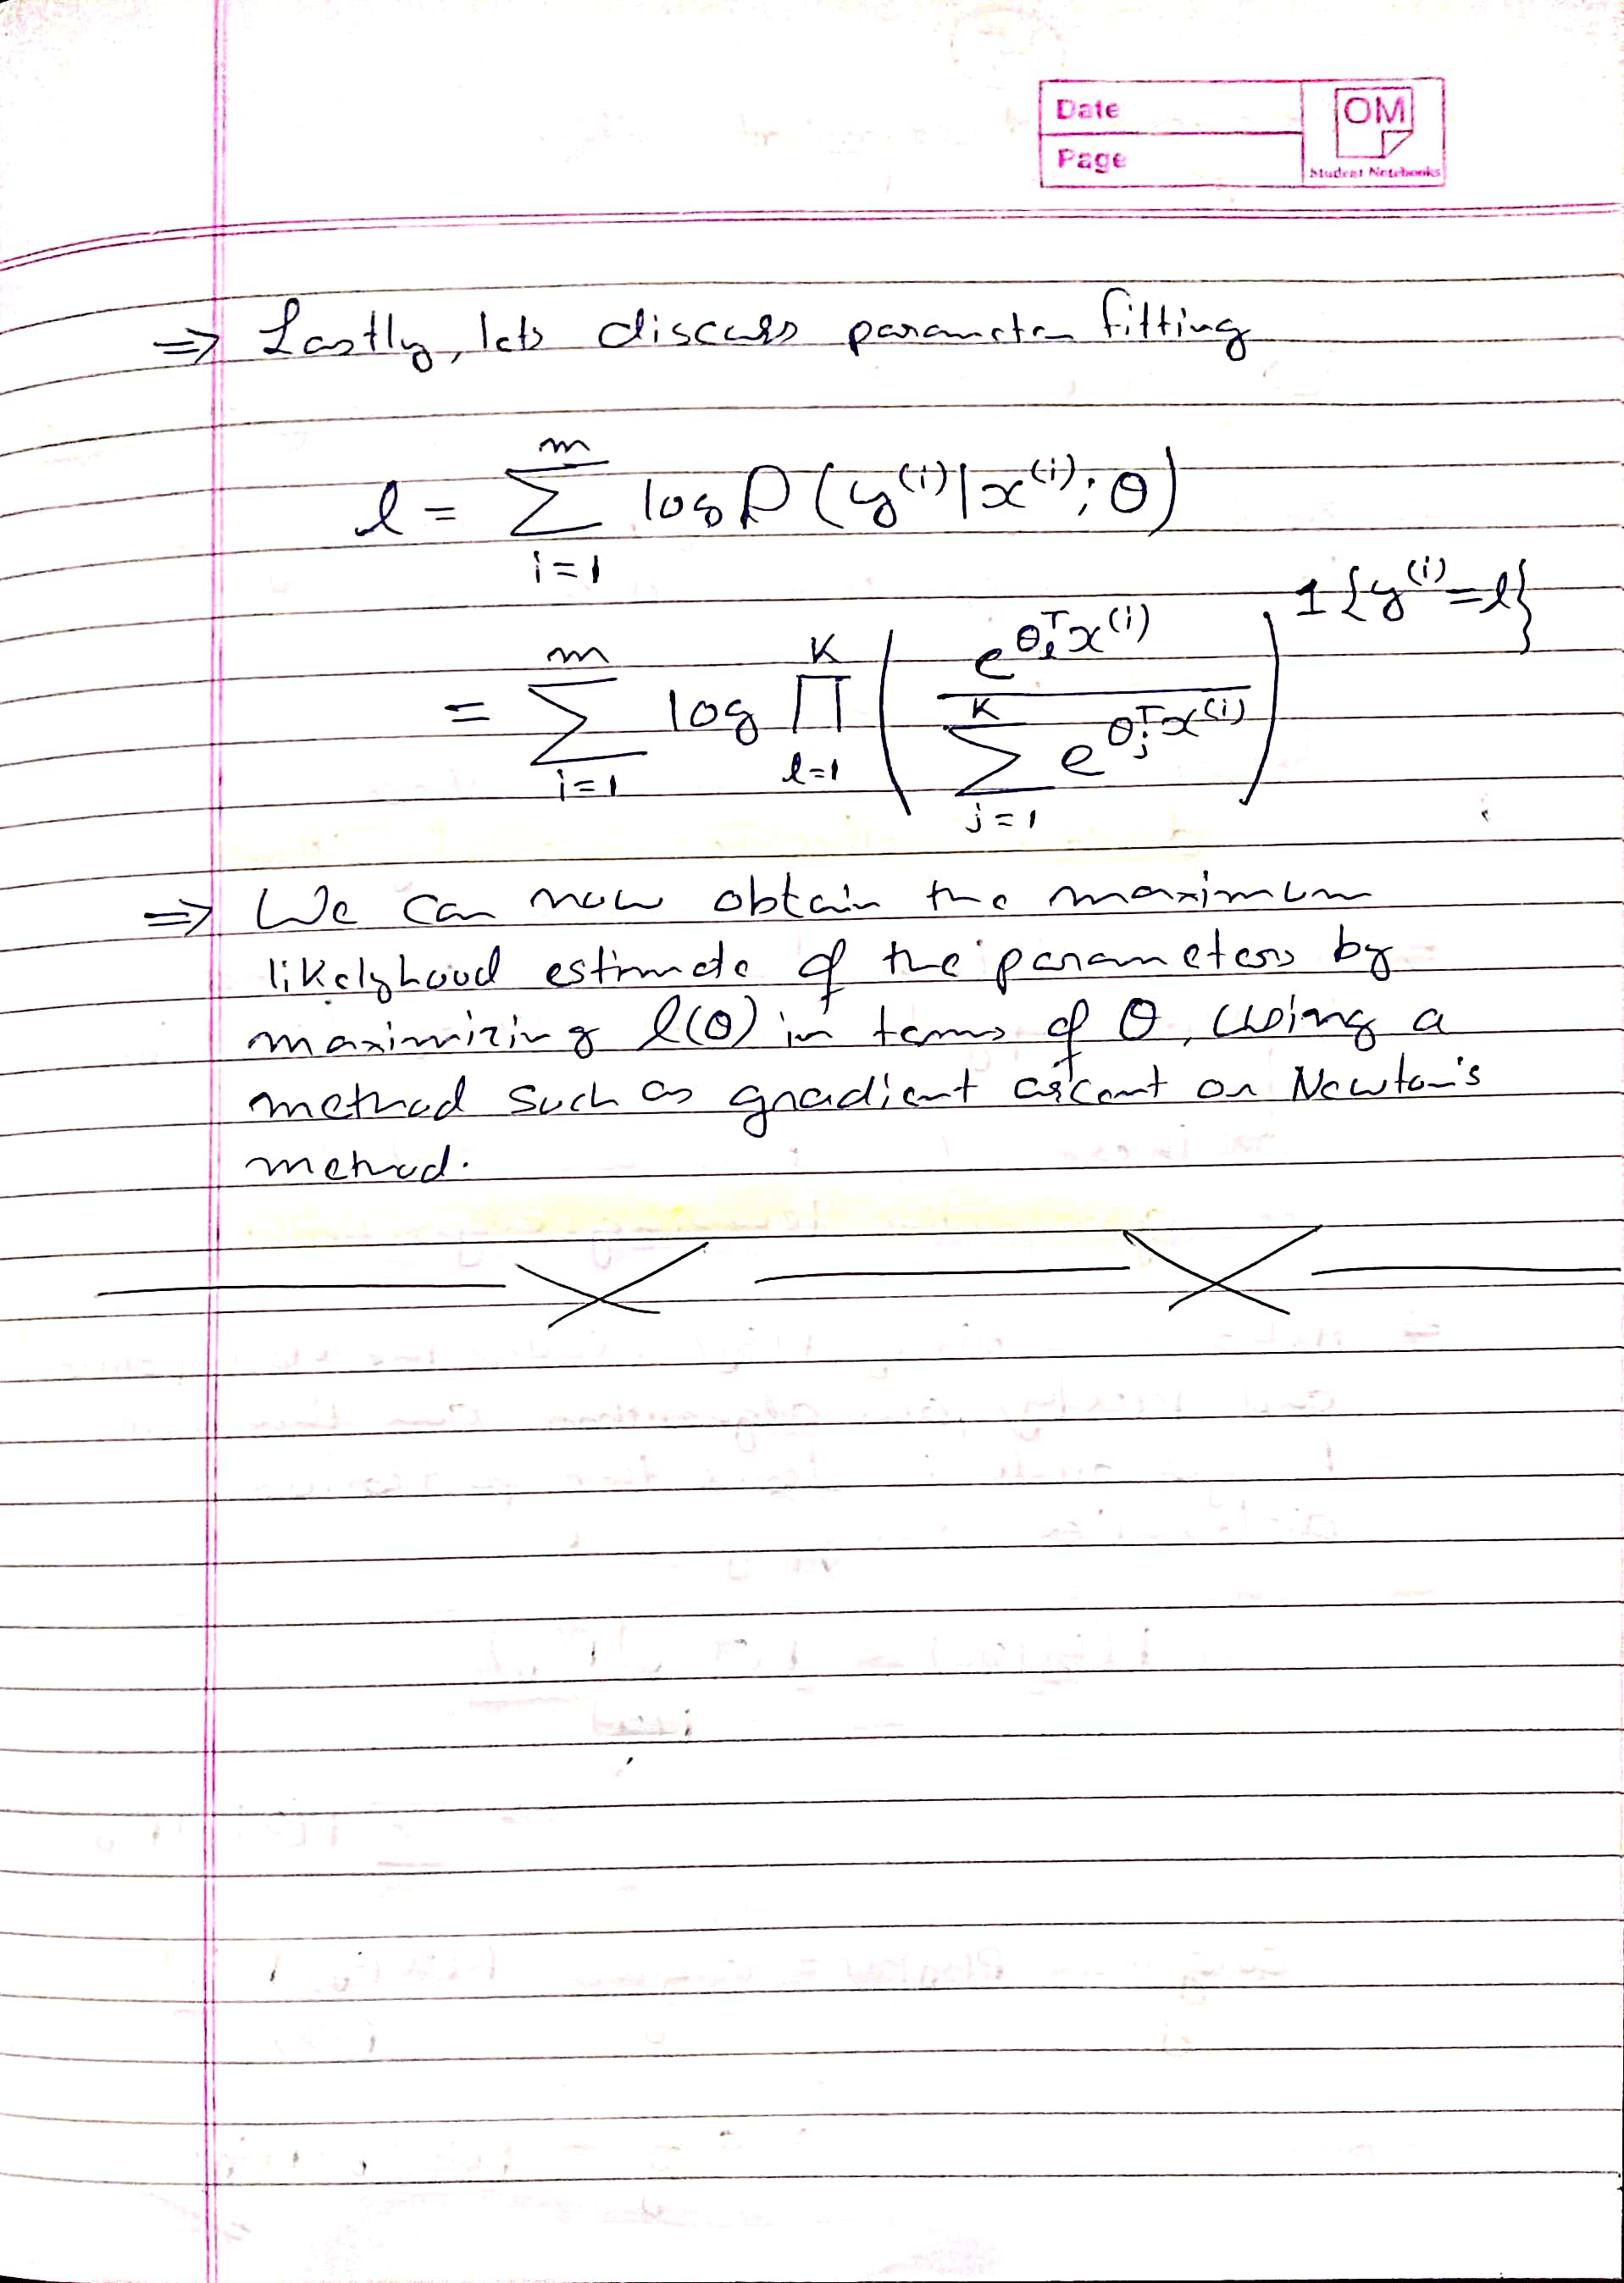 Date
Page
OM
Student Notebooks
⇒ Lastly, lets discuss parameter fitting
l = m∑i=1 log P(y^(i)|x^(i); θ)
= m∑i=1 log K∏l=1 ( e^(θ_l^T x^(i)) / K∑j=1 e^(θ_j^T x^(i)) )^1{y^(i)=l}
⇒ We can now obtain the maximum
likelyhood estimate of the parameters by
maximizing l(θ) in terms of θ, using a
method such as gradient ascent or Newton's
method.